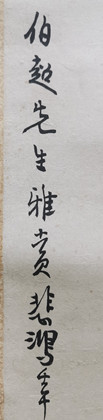 伯超先生雅賞悲鴻率